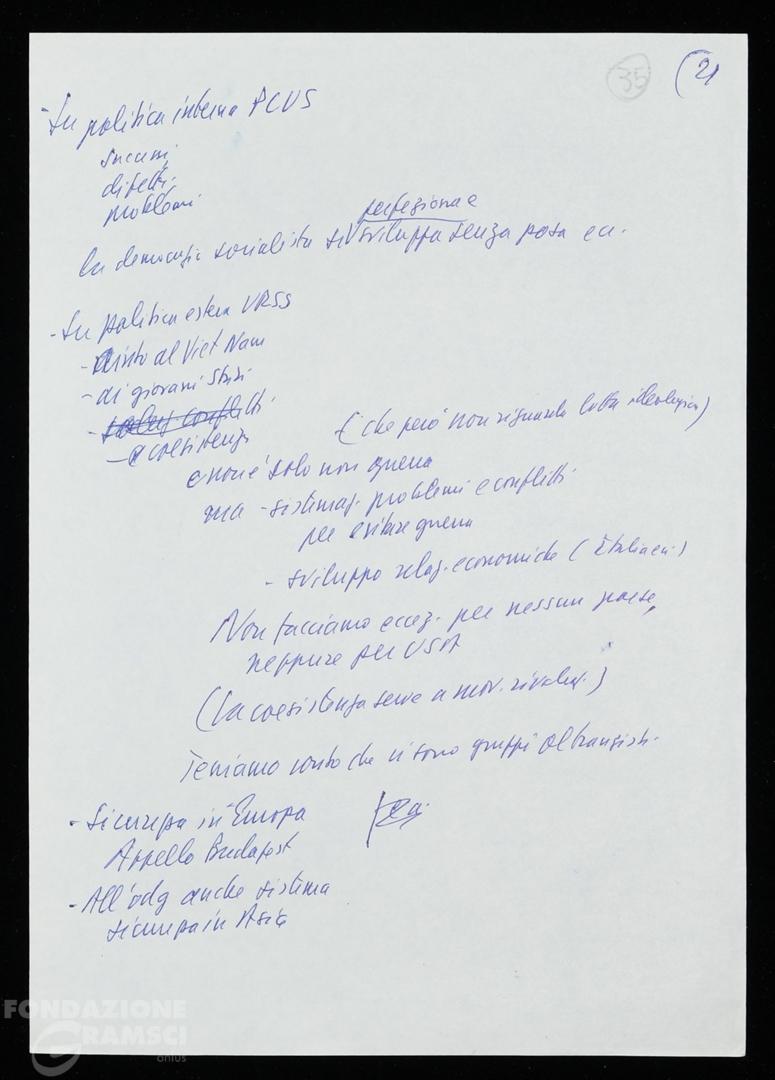 35
(21
- Su politica interna PCUS
successi,
difetti,
problemi
perfeziona e
la democrazia socialista si sviluppa senza posa ecc.
- Su politica estera URSS
- aiuto al Viet Nam
- ai giovani Stati
- conflitti
- coesistenza
(che però non riguarda lotta ideologica)
e non è solo non guerra
ma - sistemaz. problemi e conflitti
per evitare guerra
- sviluppo relaz. economiche (Italia ecc.)
Non facciamo eccez. per nessun paese,
neppure per USA
(la coesistenza serve a mov. rivoluz.)
Teniamo conto che vi sono gruppi oltranzisti.
- Sicurezza in Europa
Appello Budapest
- All'odg anche sistema
sicurezza in Asia
FONDAZIONE
GRAMSCI
onlus